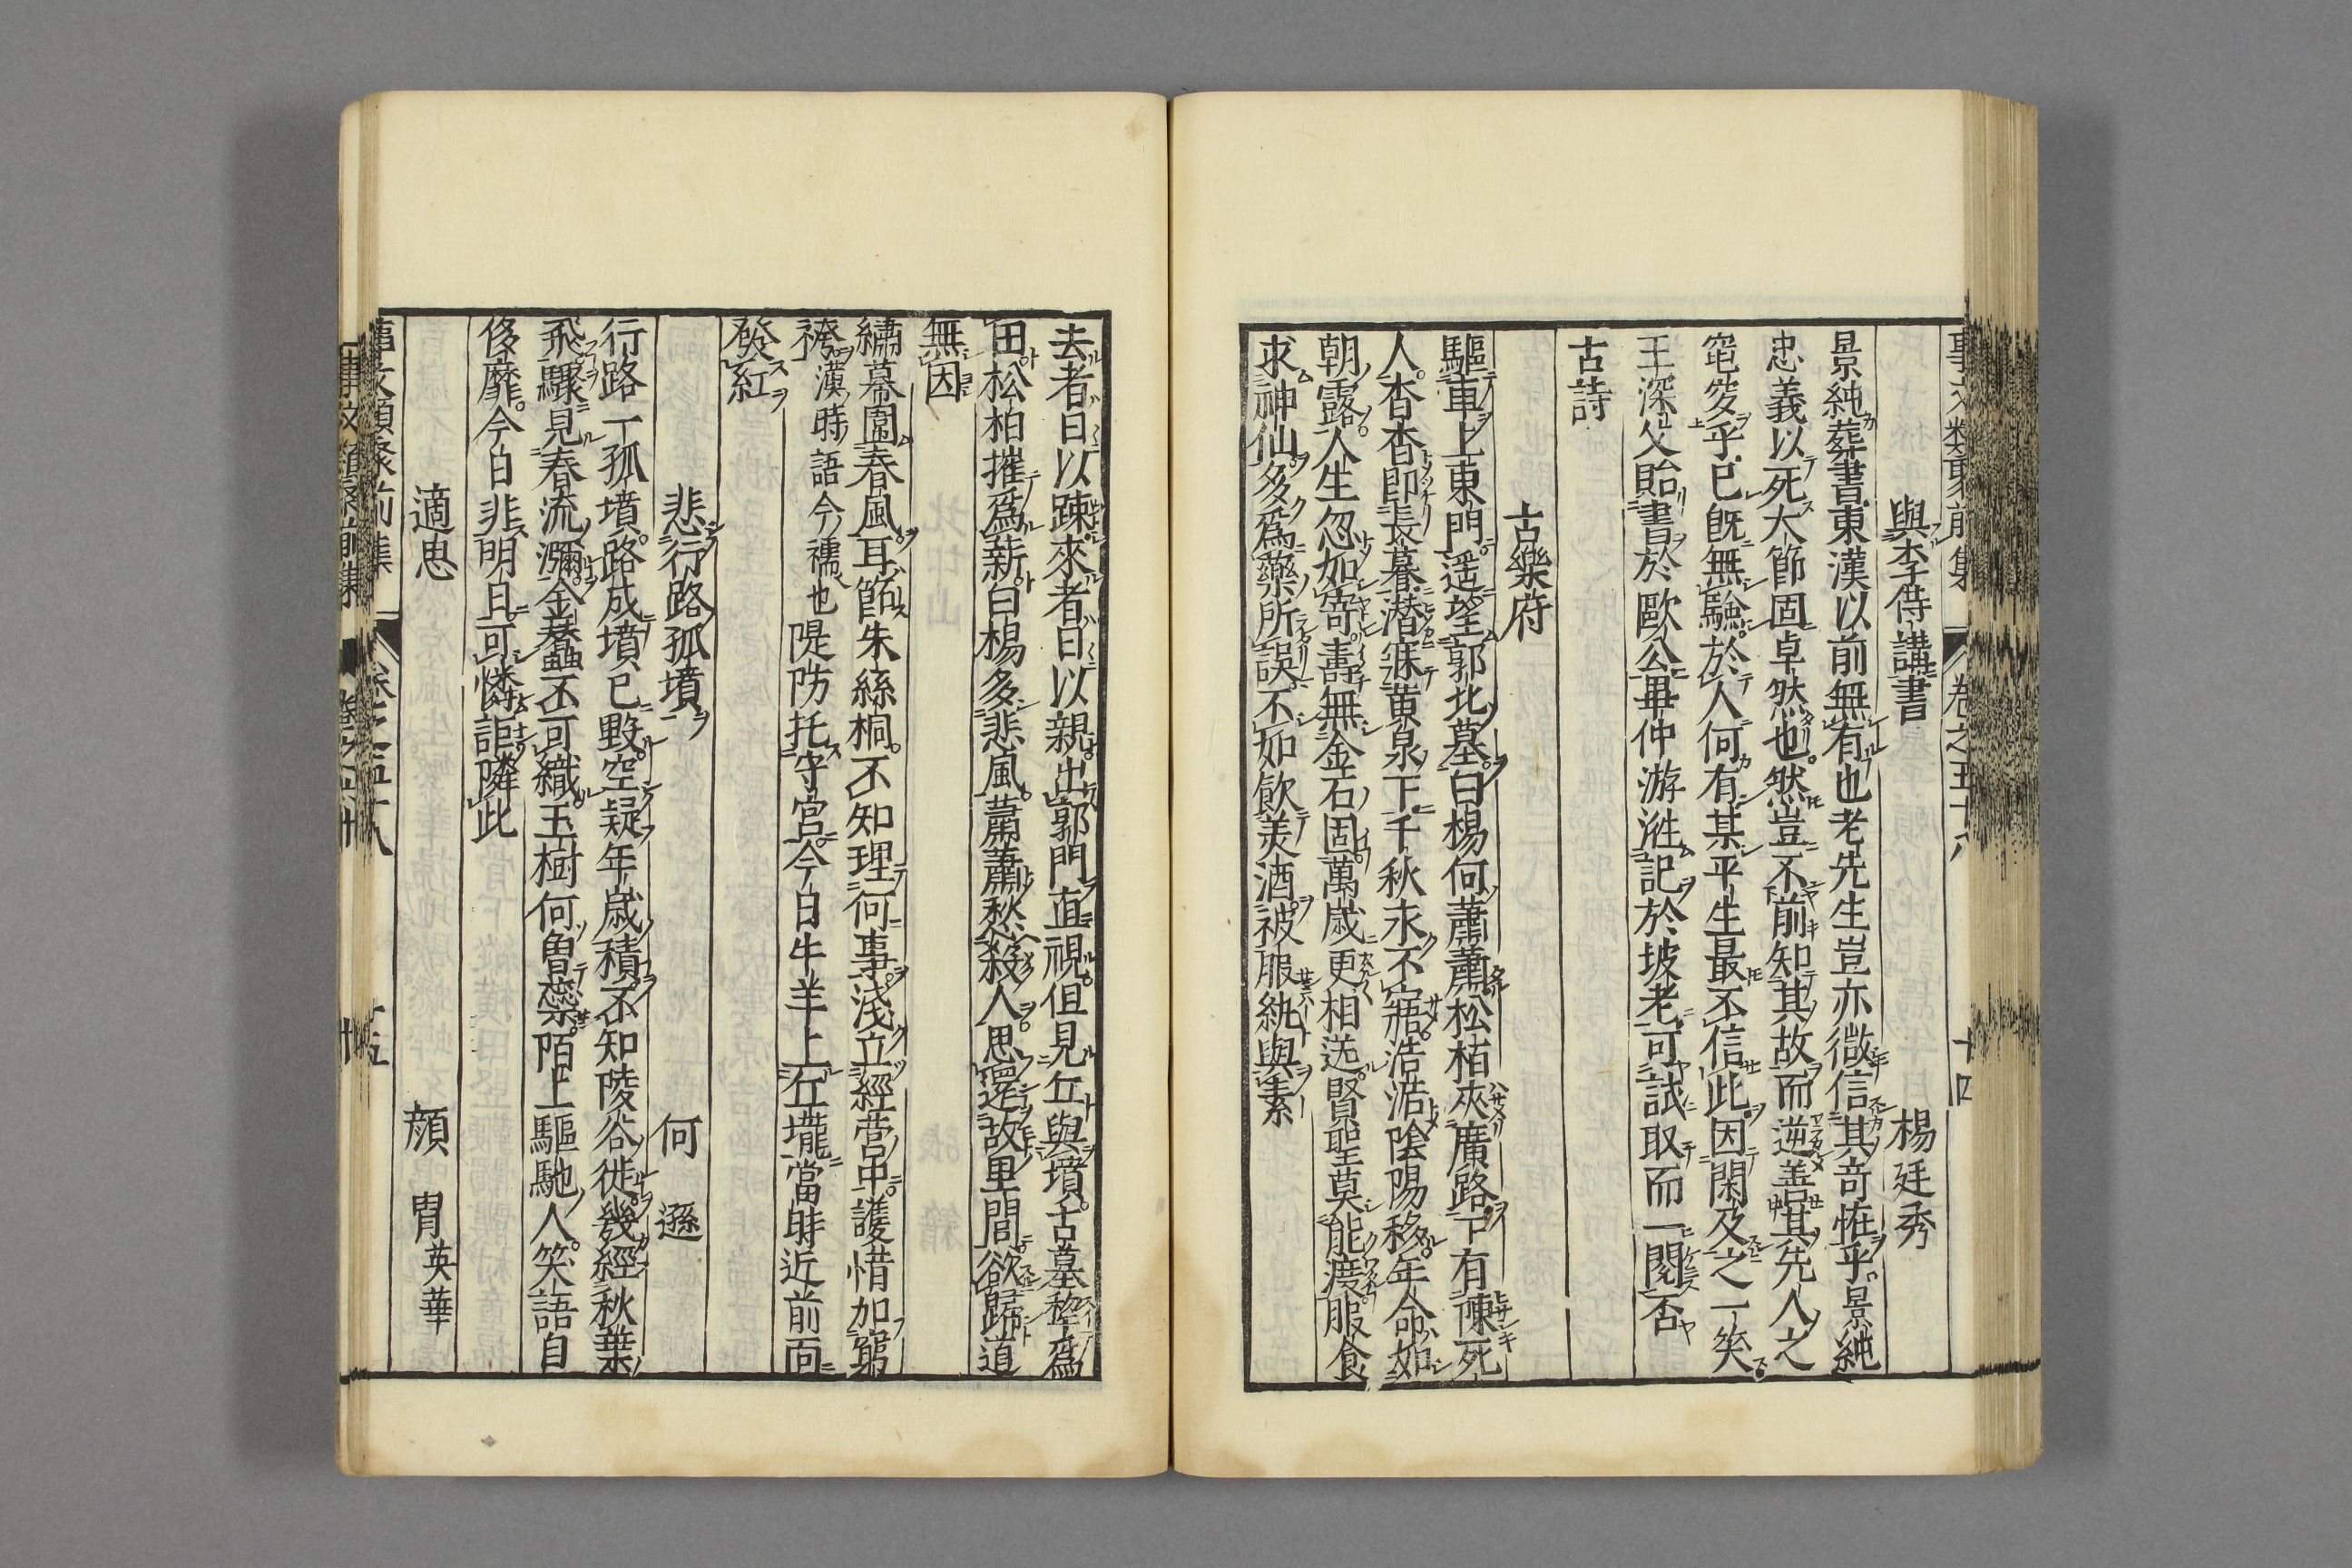 事文類聚前集 卷之五十八 十四
與李侍講書 楊廷秀
景純葬書東漢以前無有也老先生豈亦微信其奇恠乎景純
忠義以死大節固卓然也然豈不前知其故而逆善其先人之
窀穸乎已既無驗於人何有某平生最不信此因閑及之一笑
王深父貽書於歐公畢仲游
記於坡老可試取而一閱否
古詩
古樂府
驅車上東門遥望郭北墓白楊何蕭蕭松栢夾廣路下有陳死
人杳杳即長暮潜寐黄泉下千秋永不寤浩浩陰陽移年命如
朝露人生忽如寄壽無金石固萬歳更相送賢聖莫能度服食
求神仙多爲藥所誤不如飲美酒被服紈與素
去者日以踈來者日以親出郭門直視但見丘與墳古墓犂爲
田松柏摧爲薪白楊多悲風蕭蕭愁殺人思還故里閭欲歸道
無因
繡幕圍春風耳節朱絲桐不知理何事淺立經营中護惜加窮
袴漢時語今襠也隄防托守宮今日牛羊上丘壠當時近前面
發紅
悲行路孤墳 何遜
行路一孤墳路成墳已毀空疑年歳積不知陵谷徙幾經秋葉
飛驟見春流瀰金蠶不可織玉樹何曾蘂陌上驅馳人笑語自
侈靡今日非明日可憐詎隣此
適思 顔胄英華
事文類聚前集 卷之五十八 十五